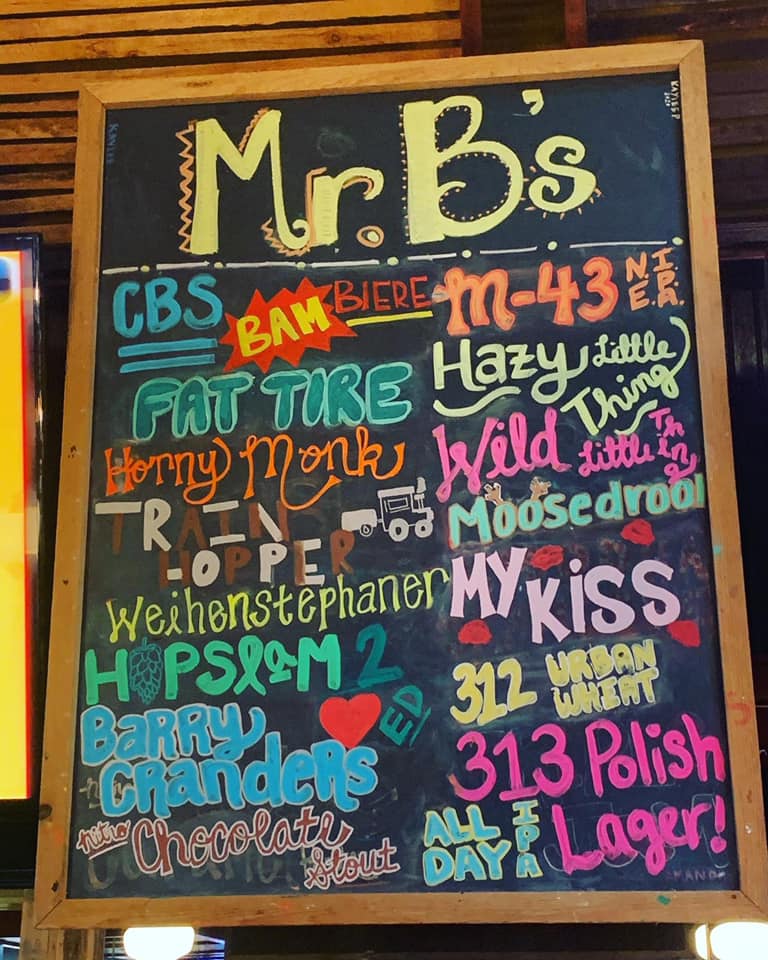 Mr. B's
CBS
BAM BIERE
FAT TIRE
Horny Monk
TRAIN
HOPPER
Weihenstephaner
HOPSLAM 2
ED
BARRY
GRANDERS
nitro Chocolate
Stout
M-43 N.E. I.P.A.
Hazy Little
Thing
Wild Little Thing
Moosedrool
MY KISS
312 URBAN
WHEAT
313 Polish
Lager!
ALL
DAY
IPA